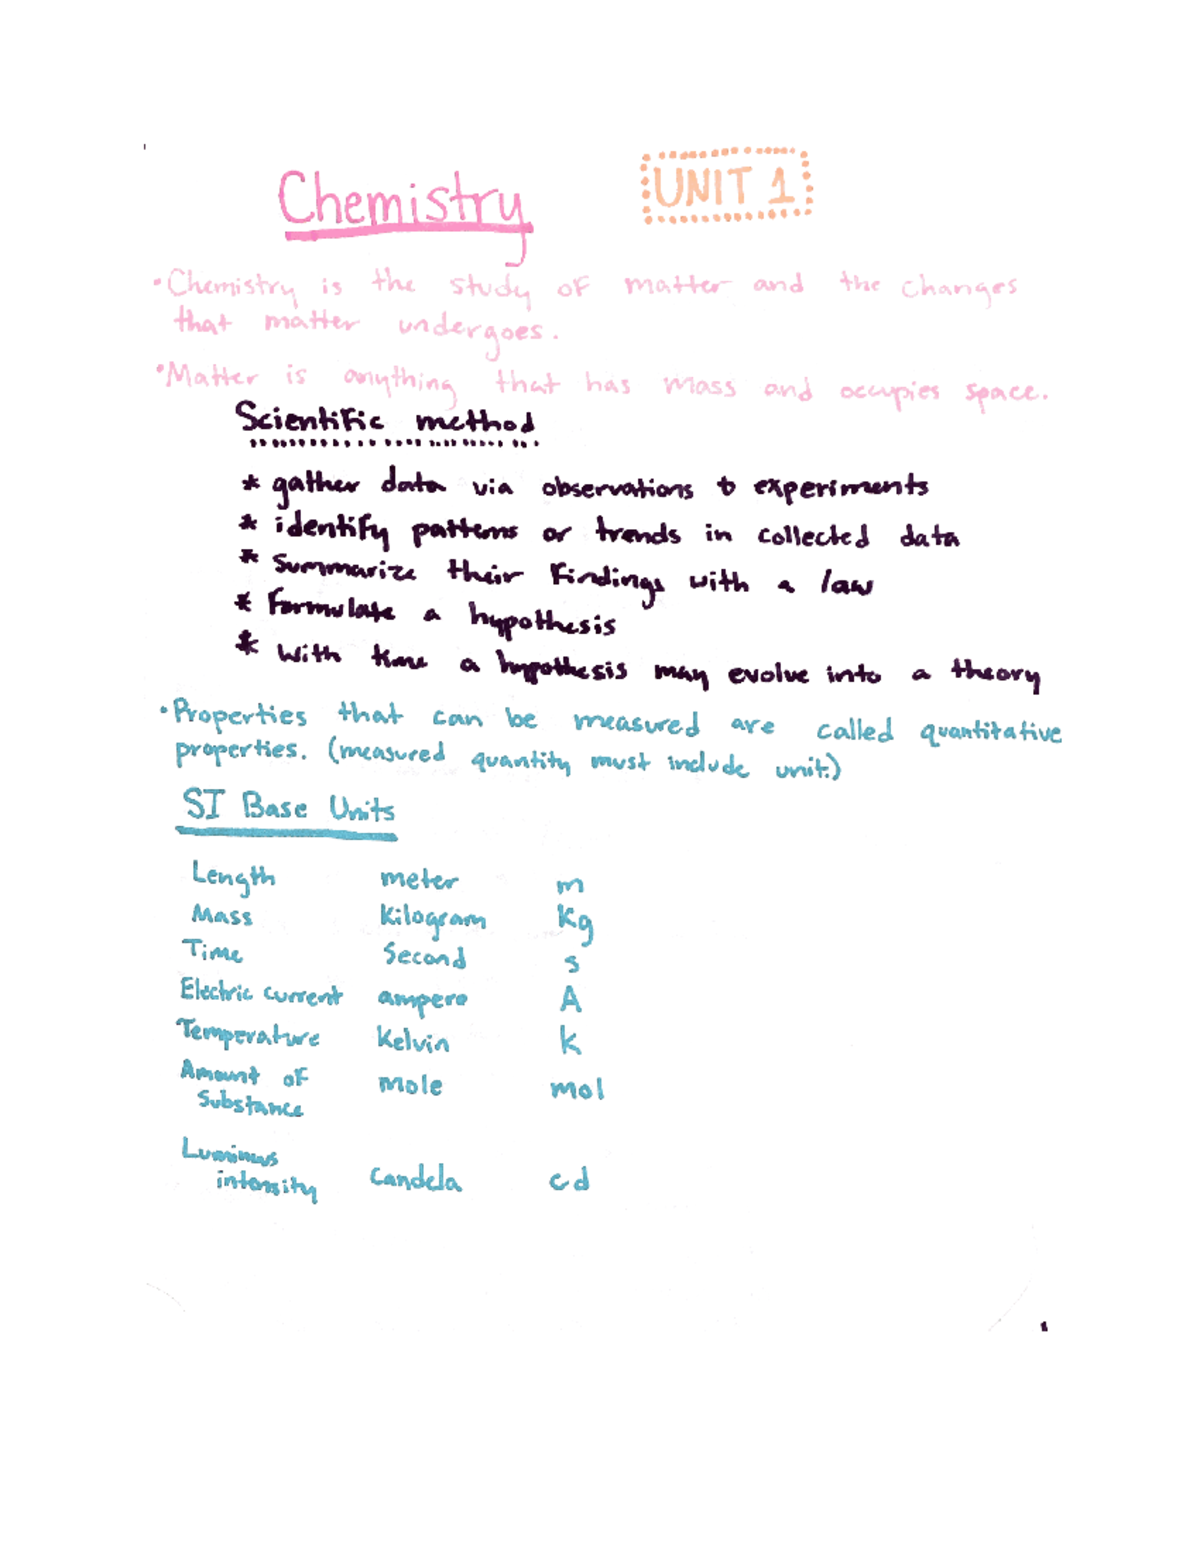 Chemistry
UNIT 1
•Chemistry is the study of matter and the changes
that matter undergoes.
•Matter is anything that has mass and occupies space.
Scientific method
* gather data via observations & experiments
* identify patterns or trends in collected data
* Summarize their findings with a law
* formulate a hypothesis
* With time a hypothesis may evolve into a theory
•Properties that can be measured are called quantitative
properties. (measured quantity must include unit.)
SI Base Units
Length meter m
Mass Kilogram Kg
Time Second s
Electric current ampere A
Temperature Kelvin k
Amount of
Substance mole mol
Luminous
intensity Candela cd